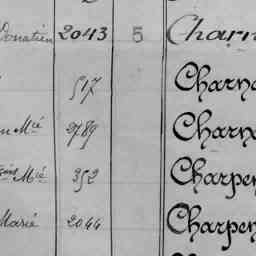 Donatien 2043 5 Charn
517 Charn
n Mié 2789 Charn
Mié 352 Charpen
Marie 2044 Charpen